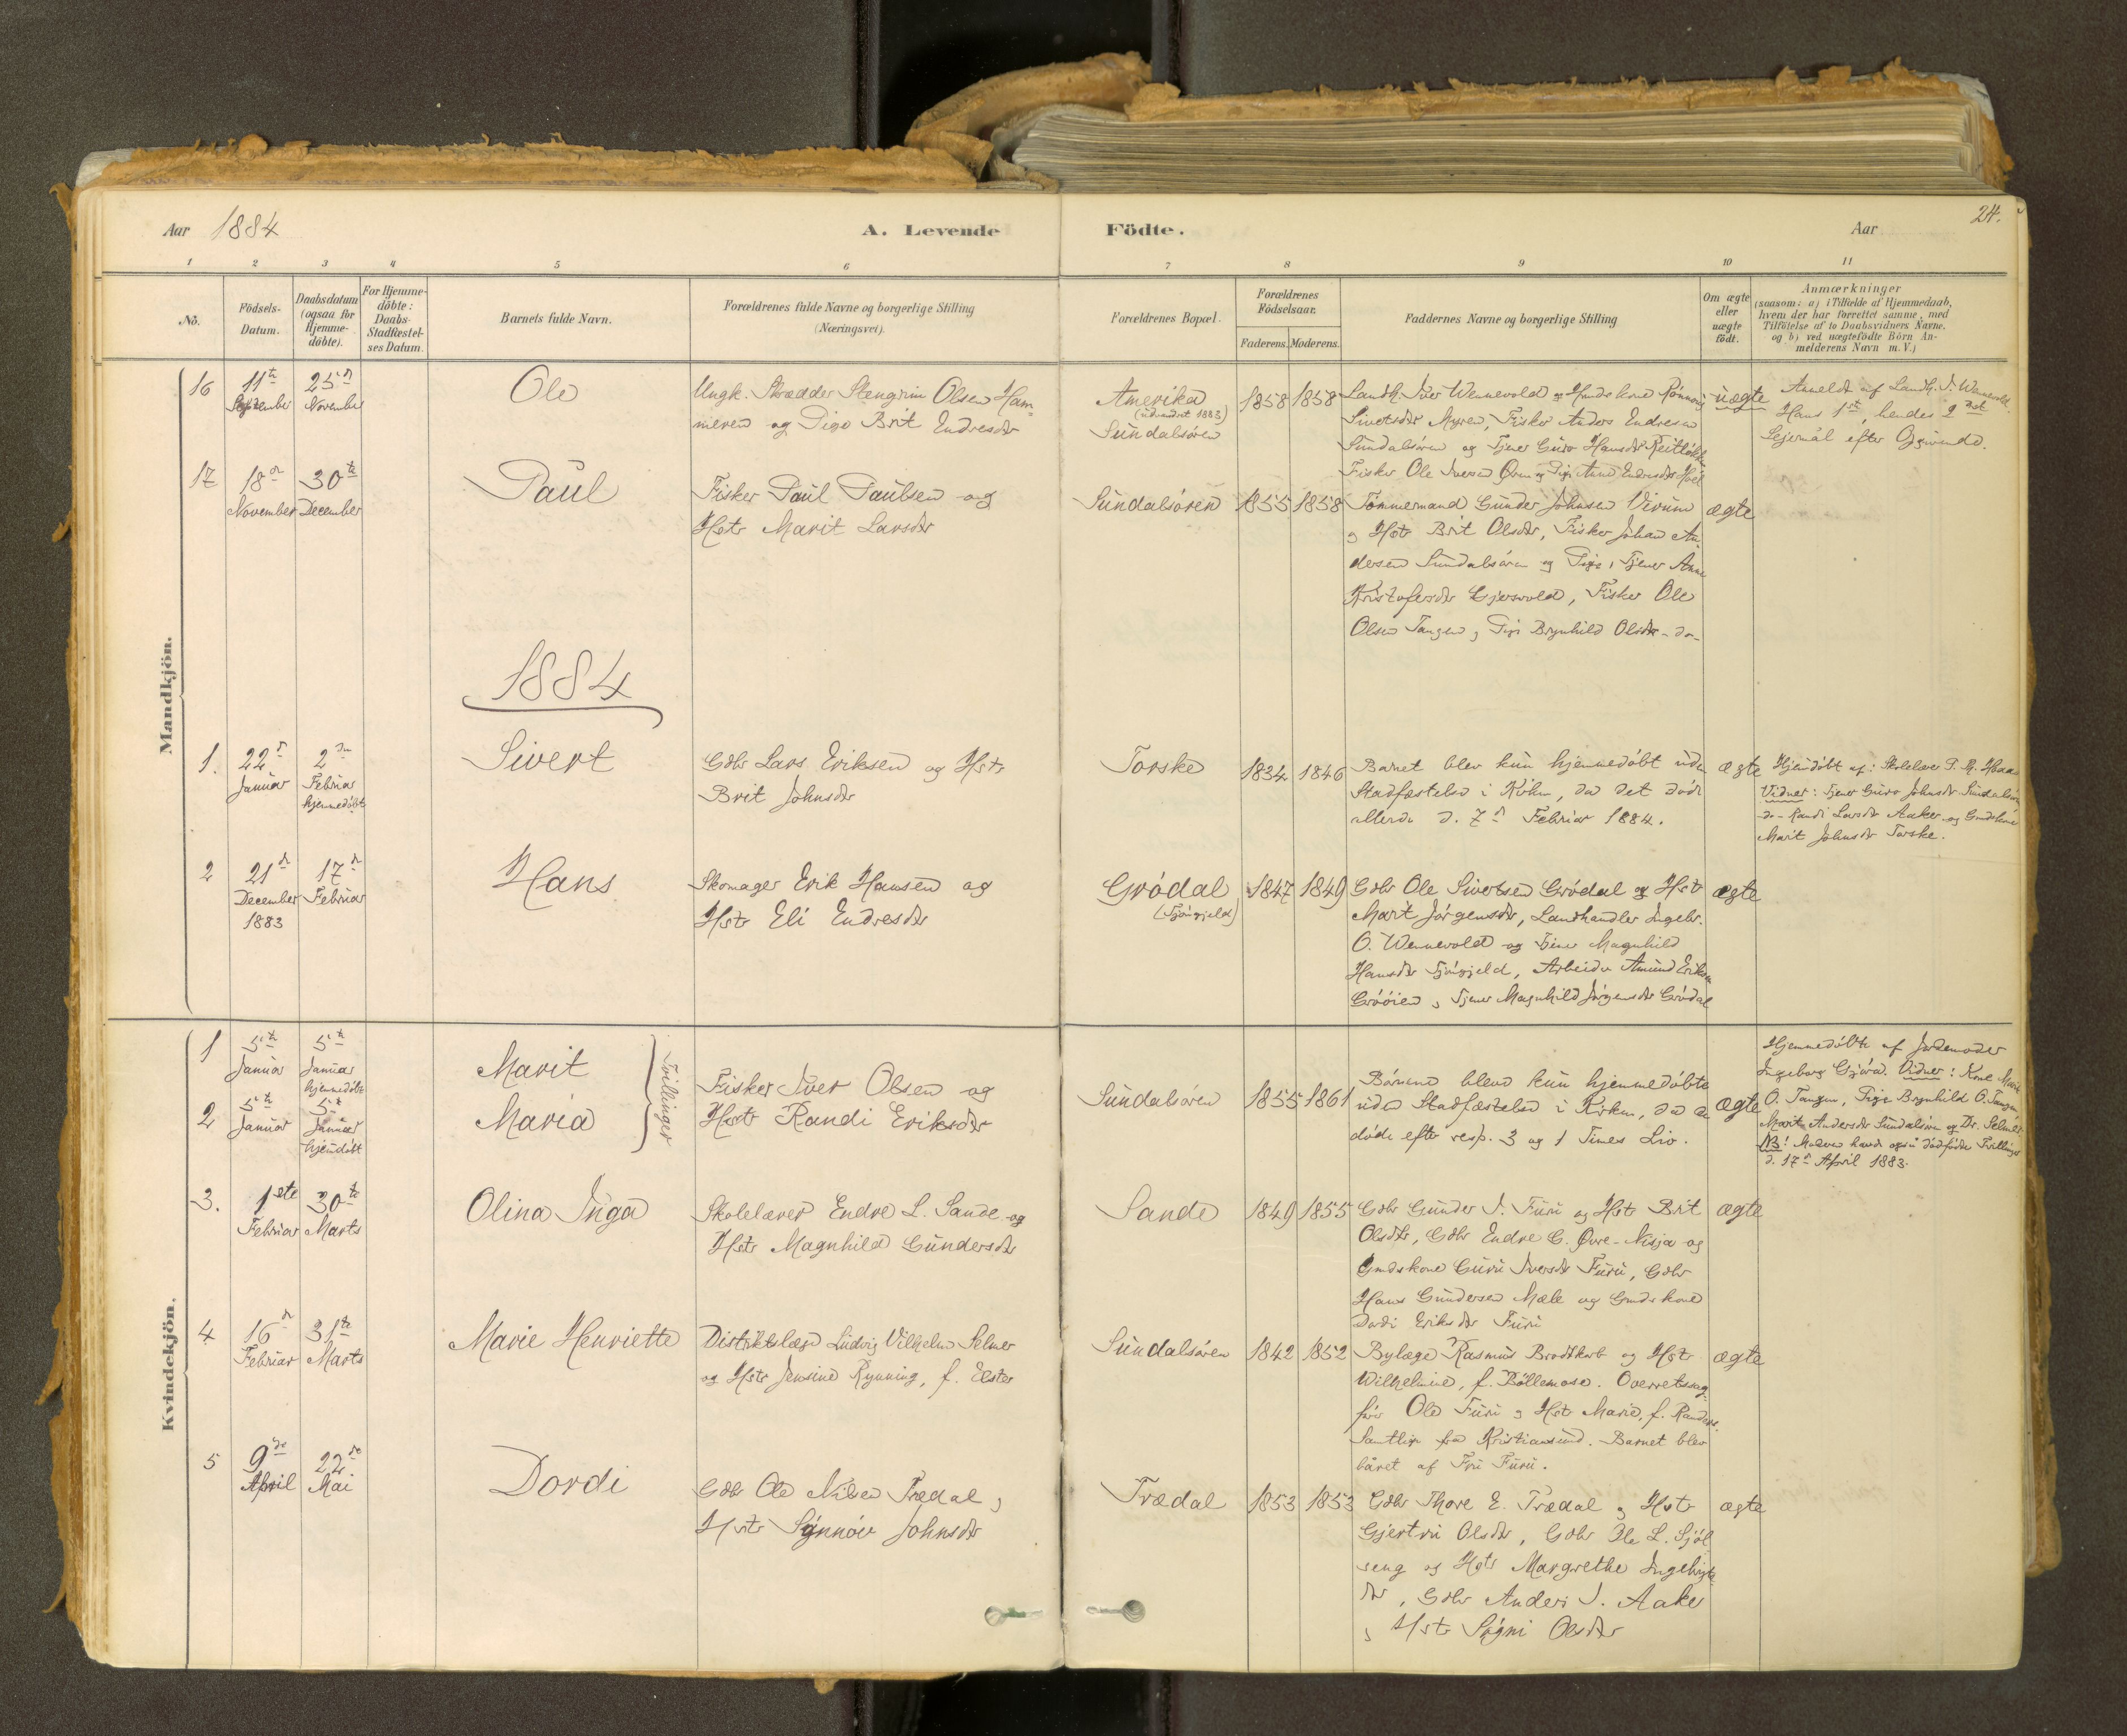 Aar 1884
A. Levende
Födte.
Aar
24.
1 2 3 4 5 6 7 8 9 10 11
Nö.
Födsels-
Datum.
Daabsdatum
(ogsaa for
Hjemme-
döbte).
For Hjemme-
döbte:
Daabs-
Stadfæstel-
ses Datum.
Barnets fulde Navn.
Forældrenes fulde Navne og borgerlige Stilling
(Næringsvei).
Forældrenes Bopæl.
Forældrenes
Födselsaar.
Faderens. Moderens.
Faddernes Navne og borgerlige Stilling
Om ægte
eller
uægte
födt.
Anmærkninger
(saasom: a) i Tilfælde af Hjemmedaab,
hvem der har forrettet samme, med
Tilföielse af to Daabsvidners Navne.
og b) ved uægtefödte Börn An-
melderens Navn m.V.)
Mandkjön.
16
11te
September
25de
November
Ole
Ungk. Skrædder Stengrim Olsen Ham-
meren og Pige Brit Endresdtr
Amerika
(udvandret 1883)
Sundalsören
1858 1858
Landh. Iver Wennevold og Hmds kone Rönnaug
Sivertsdtr Myren, Fisker Anders Endresen
Sundalsören og Tjener Guro Hansdtr
Fisker Ole Iversen og Pige Anne Endresdtr
uægte
Anmeldt af Landh. I. Wennevold.
Hans 1ste, hendes 2det
Leiermål efter Opgivende.
17
18de
November
30te
December
Paul
Fisker Paul Paulsen og
Hstr Marit Larsdtr
Sundalsören
1855 1858
Tömmermand Gunder Johnsen Virum
og Hstr Brit Olsdtr, Fisker Johan An-
dersen Sundalsören og Pige, Tjener Anne
Kristofersdtr Gjersvold, Fisker Ole
Olsen Tangen, Pige Brynhild Olsdtr -do-
ægte
1884
1.
22de
Januar
2den
Februar
hjemmedöbt
Sivert
Gdbr Lars Eriksen og Hstr
Brit Johnsdtr
Torske
1834 1846
Barnet blev kun hjemmedöbt uden
Stadfæstelse i Kirken, da det döde
allerede d. 7de Februar 1884.
ægte
Hjemdöbt af: Skolelærer
Vidner: Tjener Guro Johnsdtr Sundalsören
-do- Randi Larsdtr Aaker og Gmdskone
Marit Johnsdtr Torske.
2
21de
December
1883
17de
Februar
Hans
Skomager Erik Hansen og
Hstr Eli Endresdtr
Grödal
1847 1849
Gdbr Ole Sivertsen Grödal og Hstr
Marit Jörgensdtr, Landhandler Ingebr.
O. Wennevold og Tjener Magnhild
Hansdtr, Arbeider Amund Eriksen
Gröðien, Tjener Magnhild Jörgensdtr Grödal
ægte
Kvindekjön.
1
5te
Januar
5te
Januar
hjemmedöbt
Marit
2
5te
Januar
5te
Januar
hjemdöbt
Maria
Tvillinger
Fisker Iver Olsen og
Hstr Randi Eriksdtr
Sundalsören
1855 1861
Börnene bleve kun hjemmedöbte
uden Stadfæstelse i Kirken, da de
döde efter resp. 3 og 1 Times Liv.
ægte
Hjemmedöbte af Jordemoder
Ingeborg Gjöra. Vidner: Kone Marit
O. Tangen, Pige Brynhild O. Tangen,
Marit Andersdtr Sundalsören og Dr. Selmer.
NB! Moderen havde også dödfödte Tvillinger
d. 17de April 1883.
3.
1ste
Februar
30te
Marts
Olina Inga
Skolelærer Endre L. Sande og
Hstr Magnhild Gundersdtr
Sande
1849 1855
Gdbr Gunder I. Furu og Hstr Brit
Olsdtr, Gdbr Endre G. Övre-Nisja og
Gmdskone Guru Iversdtr Furu, Gdbr
Hans Gundersen Mæle og Gmdskone
Dordi Eriksdtr Furu
ægte
4
16de
Februar
31te
Marts
Marie Henriette
Distriktslæge Ludvig Vilhelm Selmer
og Hstr Jensine Rynning, f. Elster
Sundalsören
1842 1852
Bylæge Rasmus Brodtkorb og Hstr
Wilhelmine, f. Böllemose. Overretssag-
förer Ole Furu og Hstr Marie, f. Randers.
Samtlige fra Kristiansund. Barnet blev
båret af Fru Furu.
ægte
5
9de
April
22de
Mai
Dordi
Gdbr Ole Nilsen Trædal,
Hstr Synnöv Johnsdtr
Trædal
1853 1853
Gdbr Thore E. Trædal, Hstr
Gjertru Olsdtr, Gdbr Ole L. Sjöl-
seng og Hstr Margrethe Ingebrigts-
dtr, Gdbr Anders I. Aaker
, Hstr Signi Olsdtr
ægte